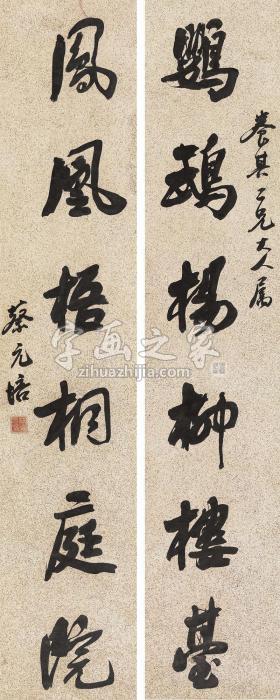 養其二兄大人属
鸚鵡楊柳樓臺
鳳凰梧桐庭院
蔡元培
字画之家
zihuazhijia.com